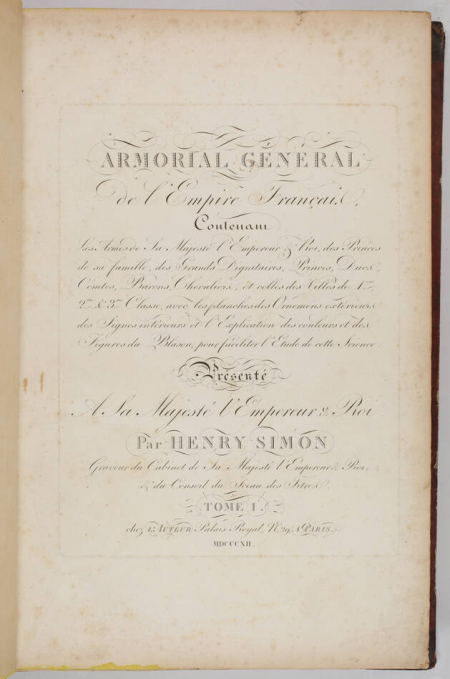 ARMORIAL GÉNÉRAL
de l'Empire Français,
Contenant
Les Armes de Sa Majesté l'Empereur & Roi, des Princes
de sa famille, des Grands Dignitaires, Princes, Ducs,
Comtes, Barons, Chevaliers, et celles des Villes de 1re,
2me & 3me Classe, avec les planches des Ornemens extérieurs
des Signes intérieurs et l'Explication des couleurs et des
Figures du Blason, pour faciliter l'Etude de cette Science
Présenté
A Sa Majesté l'Empereur & Roi
Par HENRY SIMON
Graveur du Cabinet de Sa Majesté l'Empereur & Roi,
& du Conseil du Sceau des Titres.
TOME I.
chez L'AUTEUR Palais Royal, No. A PARIS.
MDCCCXII.